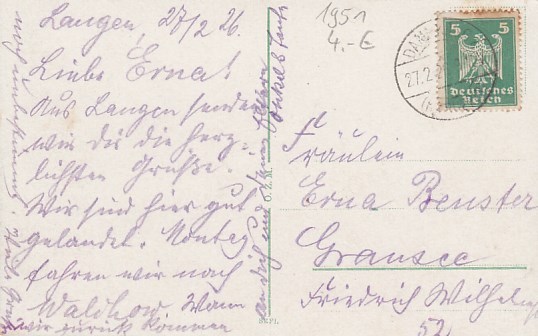 Langen, 27/2 26.
Liebe Erna!
Aus Langen senden
wir dir die herz-
lichsten Grüße.
Wir sind hier gut
gelandet. Montag
fahren wir nach
Wann
wir zurück kommen
noch unbestimmt.
an dich und deine Eltern
1951
4.-€
27.2
5 5
Deutsches
Reich
Fräulein
Erna Benster
Gransee
Friedrich Wilhelm
52